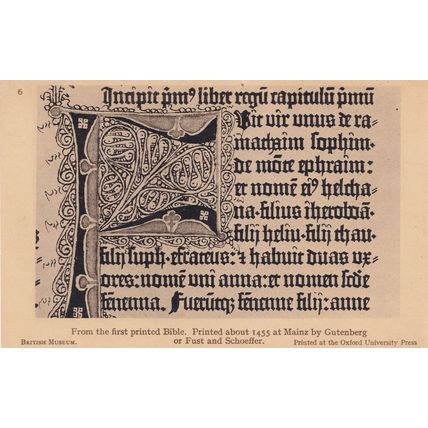 6
Incipit p̄mꝰ liber regū capitulū p̄mū
Fuit vir unus de ra-
mathaim sophim.
de mōte ephraim:
et nomē eiꝰ helcha-
na. filius iheroboā.
filij heliu. filij thau.
filij suph. effrateus: ⁊ habuit duas ux-
ores: nomē uni anna: et nomen scd̄e
fenenna. Fuerūtqȝ fenenne filij: anne
From the first printed Bible. Printed about 1455 at Mainz by Gutenberg
or Fust and Schoeffer.
British Museum.
Printed at the Oxford University Press